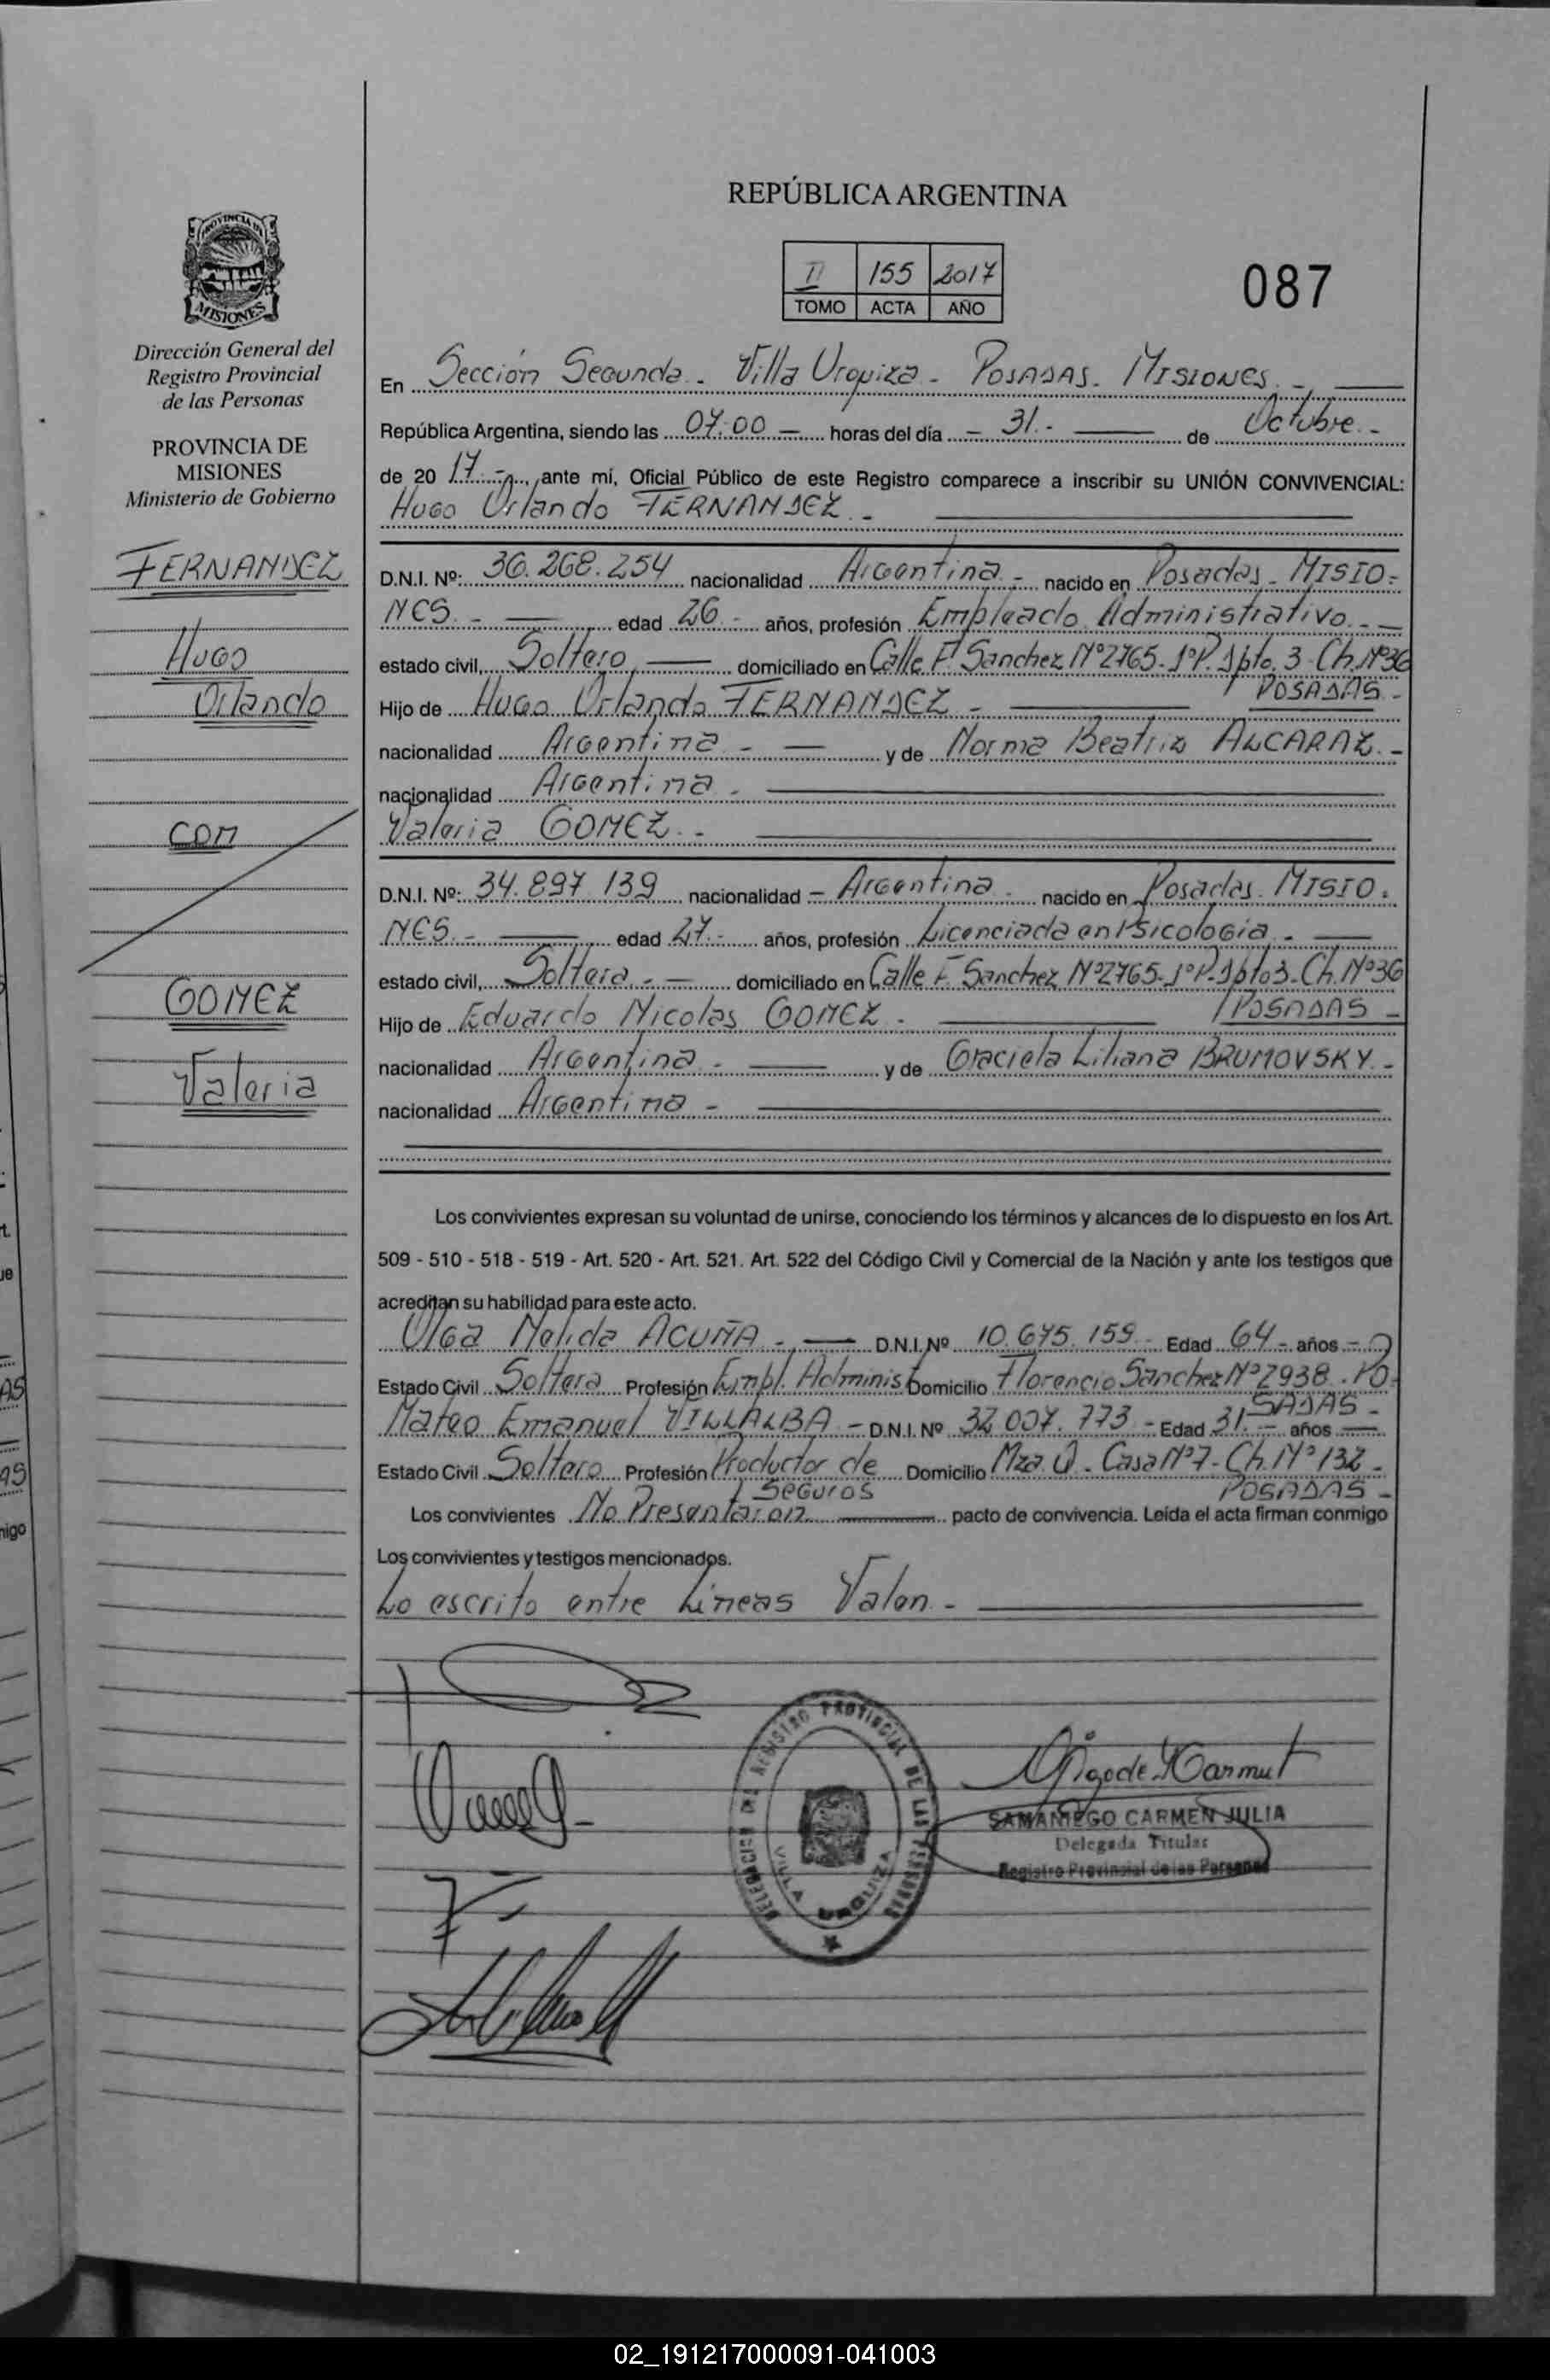 REPÚBLICA ARGENTINA
II 155 2017
TOMO ACTA AÑO
087
PROVINCIA DE
MISIONES
Dirección General del
Registro Provincial
de las Personas
PROVINCIA DE
MISIONES
Ministerio de Gobierno
FERNANDEZ
Hugo
Orlando
con
GOMEZ
Valeria
En Sección Segunda. Villa Urquiza - POSADAS. MISIONES. -
República Argentina, siendo las 07:00 - horas del día - 31. - de Octubre. -
de 20 17. -, ante mí, Oficial Público de este Registro comparece a inscribir su UNIÓN CONVIVENCIAL:
Hugo Orlando FERNANDEZ. -
D.N.I. Nº: 36.268.254 nacionalidad Argentina - nacido en Posadas - MISIO-
NES. - edad 26 - años, profesión Empleado Administrativo. -
estado civil, Soltero domiciliado en Calle F. Sanchez Nº2765. 1ºP. Dpto. 3 Ch. Nº36
POSADAS. -
Hijo de Hugo Orlando FERNANDEZ -
nacionalidad Argentina - y de Norma Beatriz ALCARAZ. -
nacionalidad Argentina -
Valeria GOMEZ. -
D.N.I. Nº: 34.897.139 nacionalidad - Argentina - nacido en Posadas. MISIO-
NES. - edad 27. - años, profesión Licenciada en Psicología. -
estado civil, Soltera. - domiciliado en Calle F. Sanchez Nº2765-1ºP. Dpto3-Ch. Nº36
POSADAS -
Hijo de Eduardo Nicolas GOMEZ -
nacionalidad Argentina. - y de Graciela Liliana BRUMOVSKY. -
nacionalidad Argentina -
Los convivientes expresan su voluntad de unirse, conociendo los términos y alcances de lo dispuesto en los Art.
509 - 510 - 518 - 519 - Art. 520 - Art. 521. Art. 522 del Código Civil y Comercial de la Nación y ante los testigos que
acreditan su habilidad para este acto.
Olga Nelida ACUÑA - D.N.I. Nº 10.675.159 - Edad 64 - años -
Estado Civil Soltera Profesión Empl. Administ Domicilio Florencio Sanchez Nº2938. PO-
SADAS -
Mateo Emanuel VILLALBA - D.N.I. Nº 32.007.773 - Edad 31 - años
Estado Civil Soltero Profesión Productor de Domicilio Mza. Q. Casa Nº7 - Ch. Nº132 -
Seguros POSADAS -
Los convivientes No Presentaron pacto de convivencia. Leída el acta firman conmigo
Los convivientes y testigos mencionados.
Lo escrito entre Líneas Valen -
DELEGACION DEL REGISTRO PROVINCIAL DE LAS PERSONAS
VILLA URQUIZA
SAMANIEGO CARMEN JULIA
Delegada Titular
Registro Provincial de las Personas
02_191217000091-041003